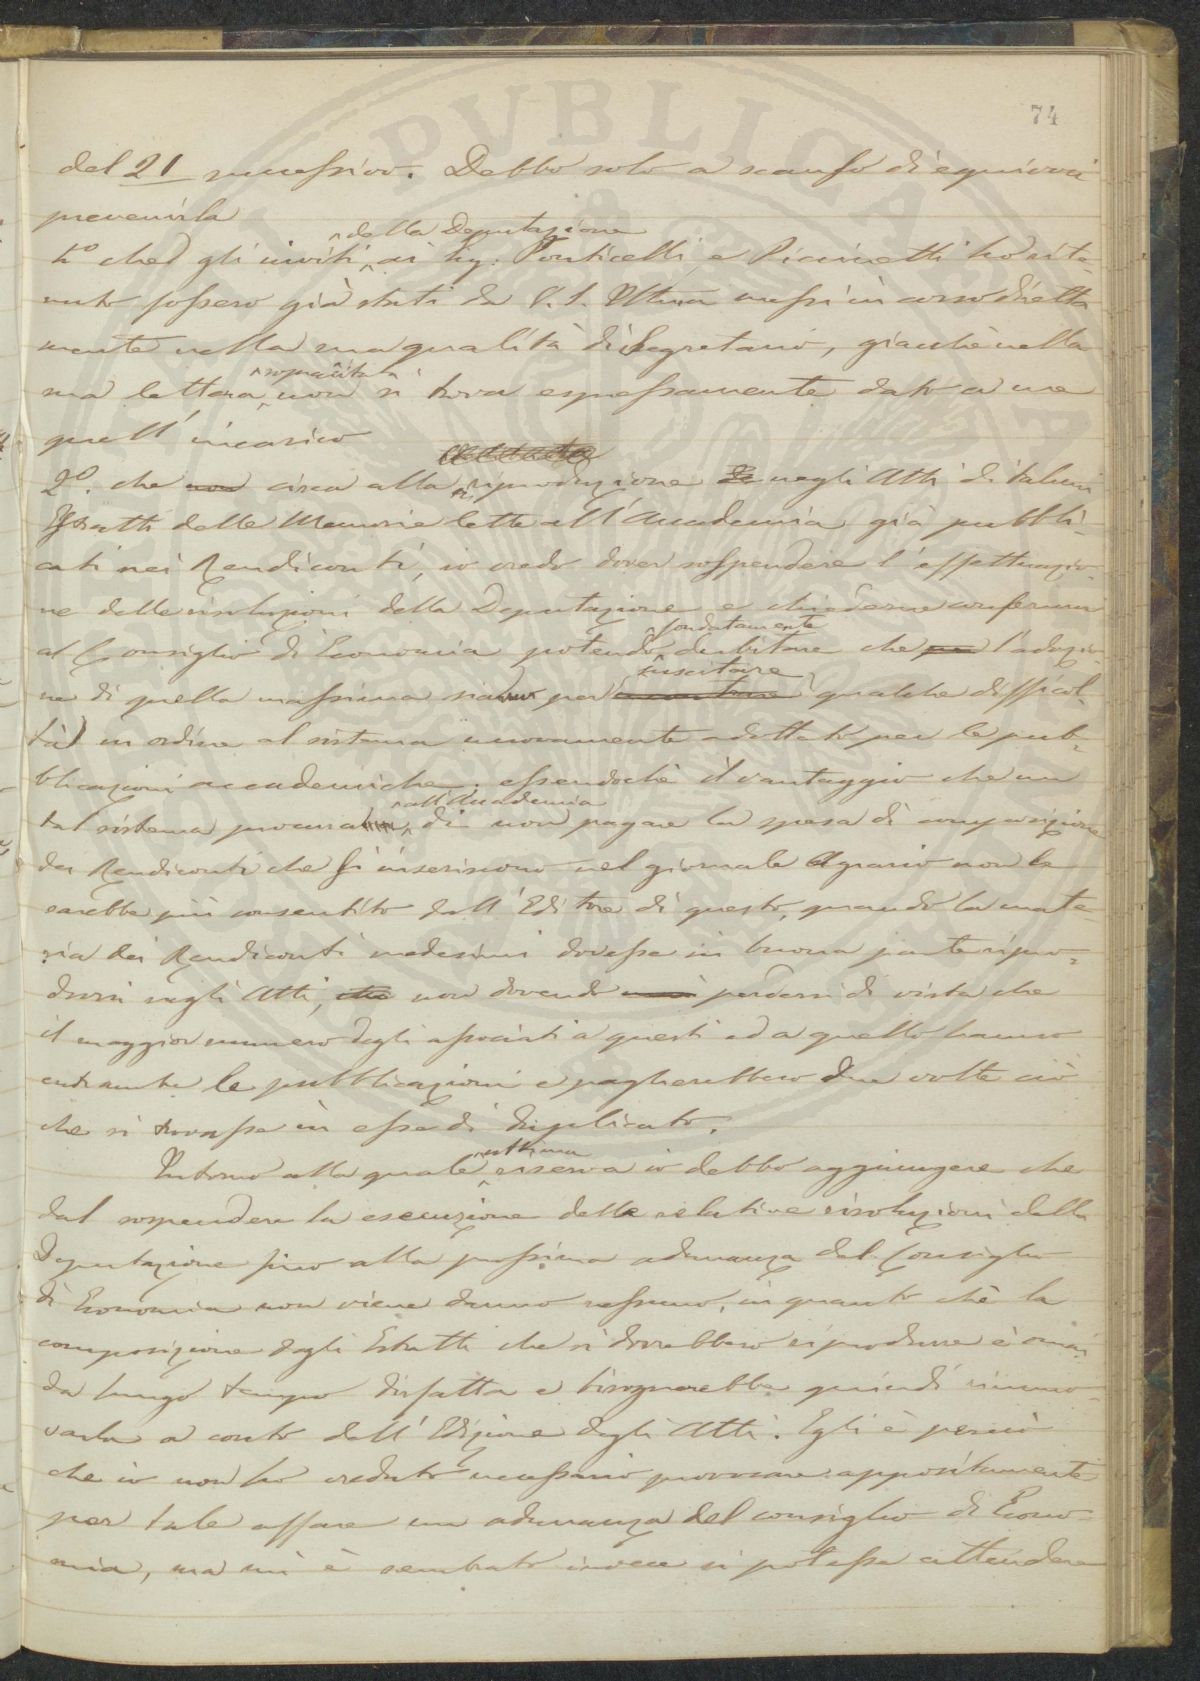 74
del 21 successivo. Debbo solo a scanso di equivoci
prevenirla
della Deputazione
1° che gli inviti ai Sig. Ponticelli e Piccinetti ho rite-
nuto fossero già stati da V. S. Illma messi in corso diretta
mente nella sua qualità di Segretario, giacchè nella
sopracitata
sua lettera non si trova espressamente dato a me
quell'incarico
2°. che non circa alla riproduzione negli Atti di taluni
Estratti delle Memorie lette all'Accademia già pubbli-
cati nei Rendiconti, io credo dover sospendere l'effettuazio-
ne delle risoluzioni della Deputazione e chiederne conferma
fondatamente
al Consiglio di Economia potendo dubitare che l'adozio-
suscitare
ne di quella massima sia per qualche difficol-
tà in ordine al sistema nuovamente adottato per le pub-
blicazioni accademiche; essendochè il vantaggio che un
all'Accademia
tal sistema procura di non pagare la spesa di composizione
dei Rendiconti che si inseriscono nel giornale Agrario non le
sarebbe più consentito dall'Editore di questo, quando la mate
ria dei Rendiconti medesimi dovesse in buona parte ripro-
dursi negli Atti, che non dovendo perdersi di vista che
il maggior numero degli associati a questi ed a quello hanno
entrambe le pubblicazioni e pagherebbero due volte ciò
che si trovasse in esse di duplicato.
ultima
Intorno alla quale riserva io debbo aggiungere che
dal sospendere la esecuzione delle relative risoluzioni della
Deputazione fino alla prossima adunanza del Consiglio
di Economia non viene danno nessuno, in quanto chè la
composizione degli Estratti che si dovrebbero riprodurre è omai
da lungo tempo disfatta e bisognerebbe quindi rinno-
varla a conto dell'Edizione degli Atti. Egli è perciò
che io non ho creduto necessario provocare appositamente
per tale affare una adunanza del consiglio di Econo-
mia, ma mi è sembrato invece si potesse attendere